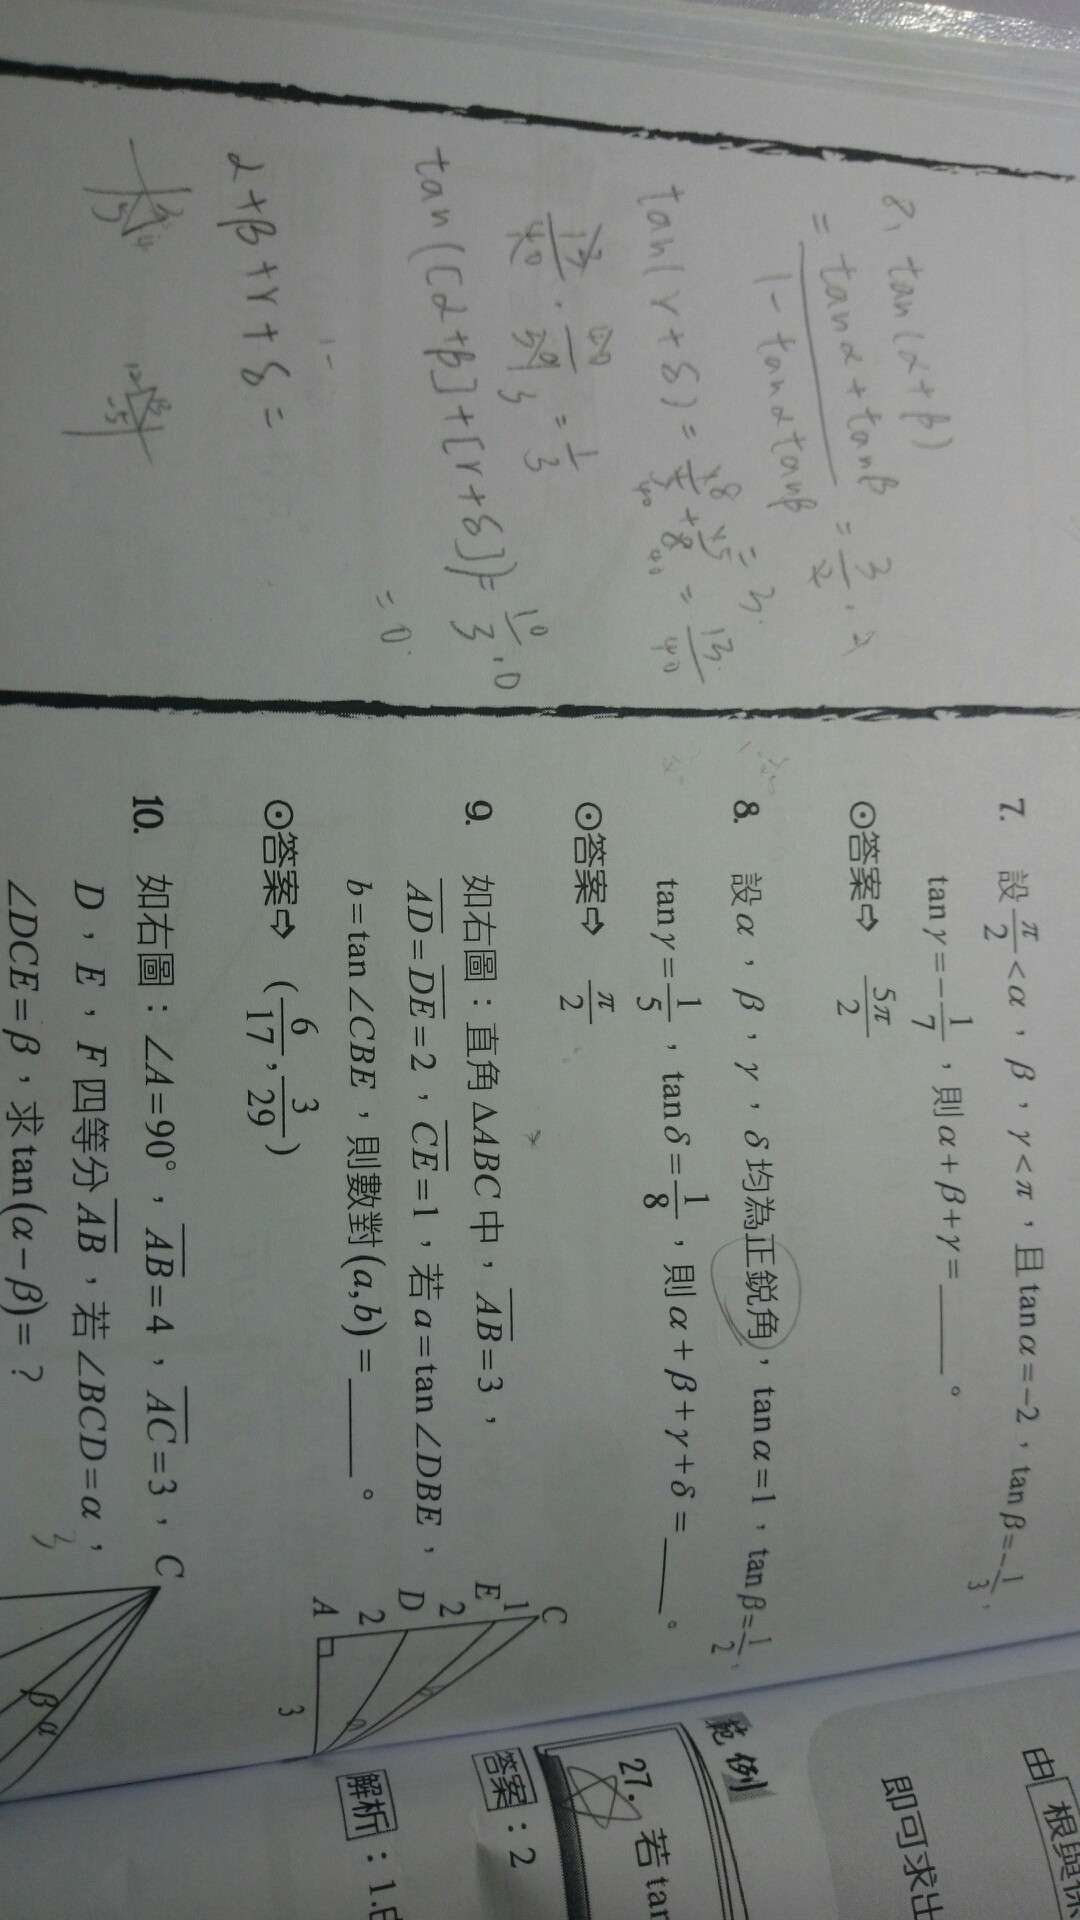 7. 設π/2<α，β，γ<π，且tanα=-2，tanβ=-1/3，
tanγ=-1/7，則α+β+γ=______。
⊙答案⇨ 5π/2
8. 設α，β，γ，δ均為正銳角，tanα=1，tanβ=1/2，
tanγ=1/5，tanδ=1/8，則α+β+γ+δ=____。
⊙答案⇨ π/2
9. 如右圖：直角ΔABC中，AB=3，
AD=DE=2，CE=1，若a=tan∠DBE，
b=tan∠CBE，則數對(a,b)=______。
⊙答案⇨ (6/17,3/29)
C
1
E
2
D
2
A
3
10. 如右圖：∠A=90°，AB=4，AC=3，
D，E，F四等分AB，若∠BCD=α，
∠DCE=β，求tan(α-β)=?
C
β α
8, tan(α+β)
= tanα+tanβ / 1-tanαtanβ = 3/2 · 2
= 3
tan(r+δ)= 1/5 + 1/8 = 13/40
13/40 · 40/39 = 1/3
tan([α+β]+[r+δ])= 10/3 · 0
= 0
α+β+r+δ=
由根與係
即可求出
範例
27. 若tan
答案：2
解析：1.由